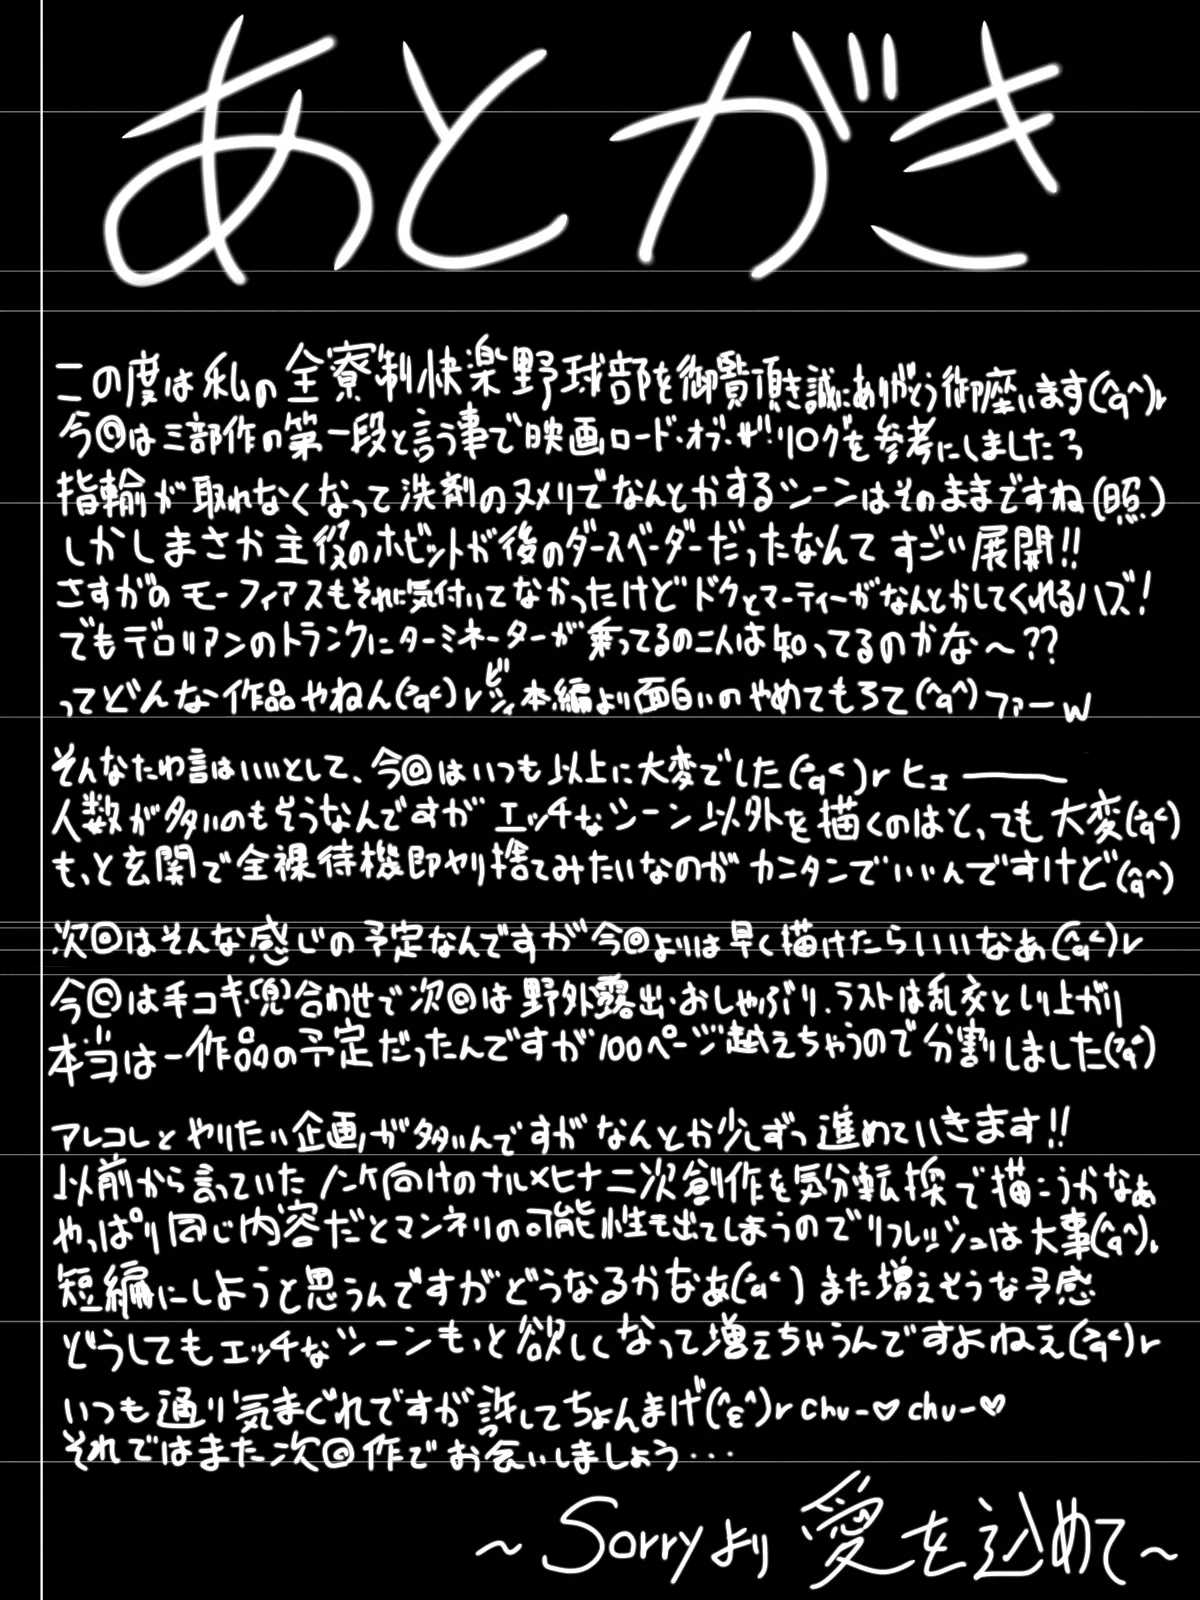 あとがき
この度は私の全寮制快楽野球部を御覧頂き誠にありがとう御座います(^q^)r
今回は三部作の第一段と言う事で映画ロード・オブ・ザ・リングを参考にしましたっ
指輪が取れなくなって洗剤のヌメリでなんとかするシーンはそのままですね(照)
しかしまさか主役のホビットが後のダースベーダーだったなんて すごい展開!!
さすがの モーフィアスもそれに気付いてなかったけど ドクとマーティーがなんとかしてくれるハズ!
でもデロリアンのトランクにターミネーターが乗ってるの二人は知ってるのかな〜??
ってどんな作品やねん(^q^)r ビシィ 本編より面白いのやめてもろて(^q^)ファーw
そんなたわ言はいいとして、今回はいつも以上に大変でした(^q^)r ヒェ――
人数が多いのもそうなんですが エッチなシーン以外を描くのはとっても大変(^q^)
もっと玄関で全裸待機即ヤリ捨てみたいなのが カンタンでいいんですけど(^q^)
次回はそんな感じの予定なんですが今回よりは早く描けたらいいなあ(^q^)r
今回は手コキ・(兜)合わせで次回は野外露出・おしゃぶり、ラストは乱交としり上がり
本当は一作品の予定だったんですが100ページ越えちゃうので分割しました(^q^)
アレコレとやりたい企画が多いんですがなんとか少しずつ進めていきます!!
以前から言っていたノンケ向けのナルメヒナ二次創作を気分転換で描こうかなぁ
やっぱり同じ内容だとマンネリの可能性も出てしまうのでリフレッシュは大事(^q^)r
短編にしようと思うんですがどうなるかなあ(^q^) また増えそうな予感
どうしてもエッチなシーンもっと欲しくなって増えちゃうんですよねぇ(^q^)r
いつも通り気まぐれですが許してちょんまげ(^ε^)r chu-♡ chu-♡
それではまた次回作でお会いしましょう・・・
〜Sorryより 愛を込めて〜